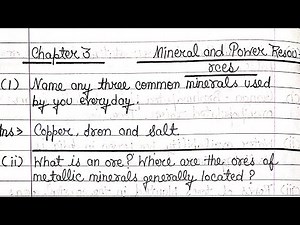 Chapter 3 Mineral and Power Resou-
rces
(1) Name any three common minerals used
by you everyday.
Ans > Copper, Iron and salt
(ii) What is an ore? Where are the ores of
metallic minerals generally located?